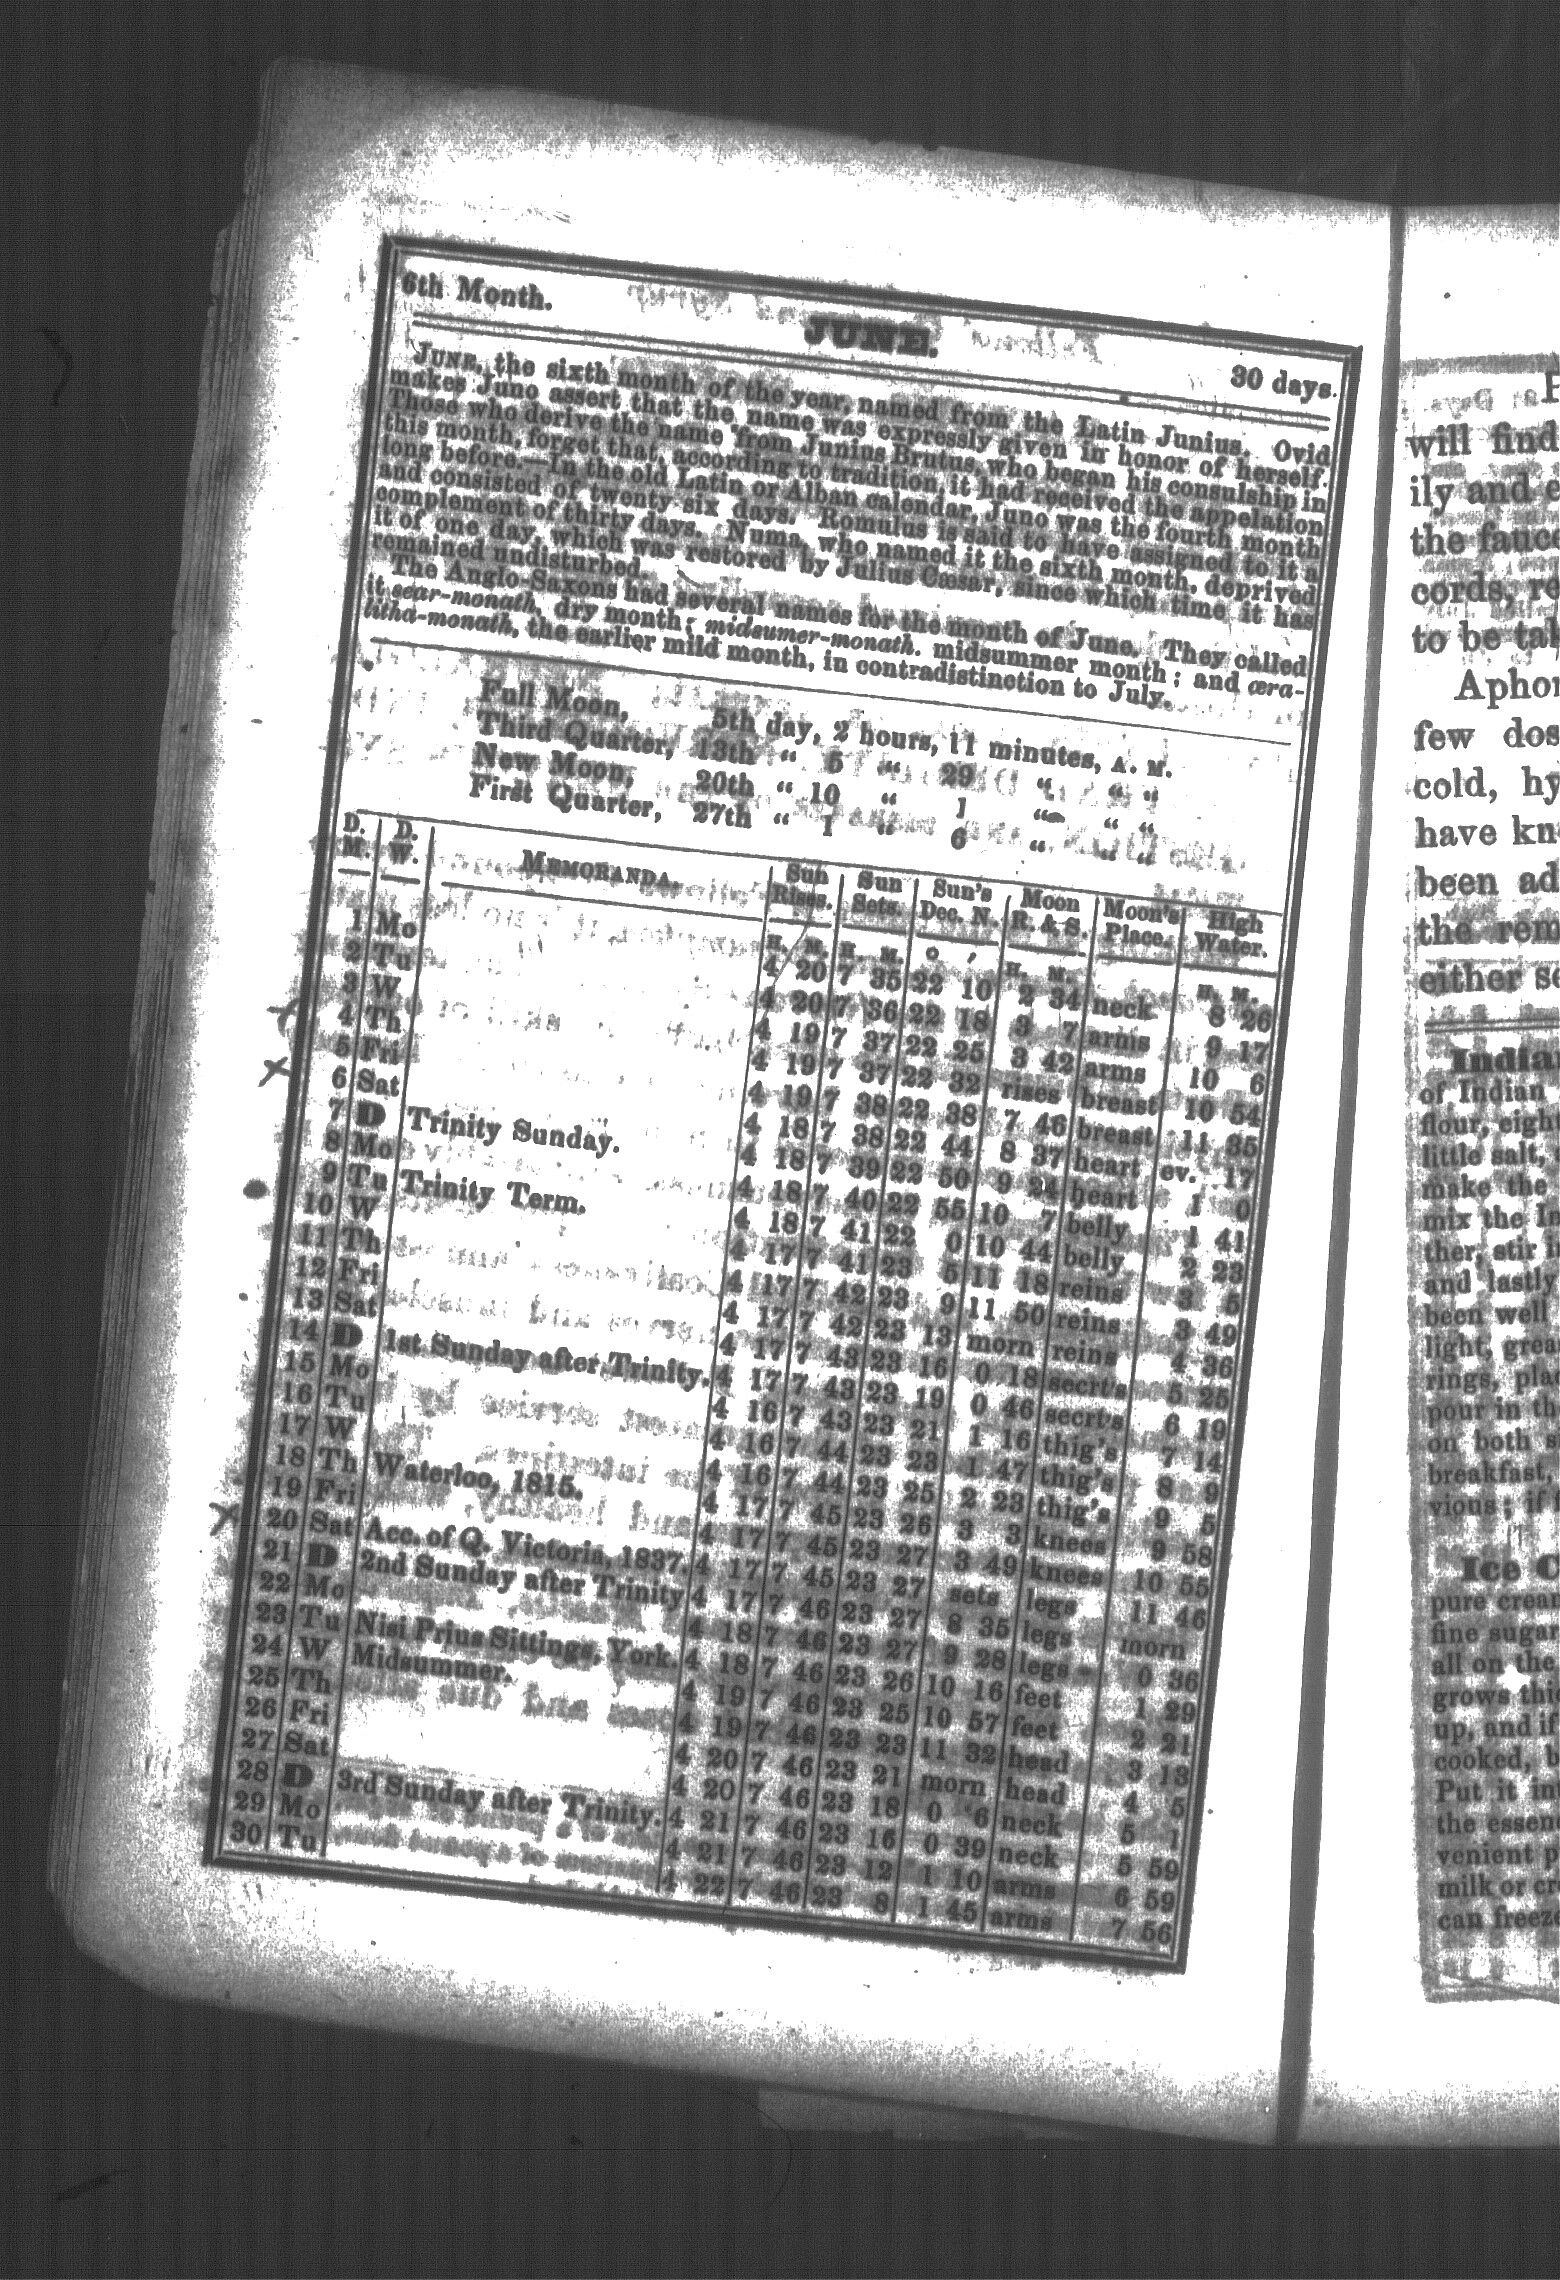 6th Month. JUNE. 30 days.
JUNE, the sixth month of the year, named from the Latin Junius. Ovid
makes Juno assert that the name was expressly given in honor of herself.
Those who derive the name from Junius Brutus, who began his consulship in
this month, forget that, according to tradition, it had received the appelation
long before.—In the old Latin or Alban calendar, Juno was the fourth month
and consisted of twenty six days. Romulus is said to have assigned to it a
complement of thirty days. Numa, who named it the sixth month, deprived
it of one day, which was restored by Julius Cæsar, since which time it has
remained undisturbed.
The Anglo-Saxons had several names for the month of June. They called
it sear-monath, dry month; midsumer-monath. midsummer month; and æra-
litha-monath, the earlier mild month, in contradistinction to July.
Full Moon, 5th day, 2 hours, 11 minutes, A. M.
Third Quarter, 13th “ 5 “ 29 “ “ “
New Moon, 20th “ 10 “ 1 “ “ “
First Quarter, 27th “ 1 “ 6 “ “ “
D. M. D. W. MEMORANDA. Sun Rises. Sun Sets. Sun's Dec. N. Moon R. & S. Moon's Place. High Water.
H. M. H. M. ° ' H. M. H. M.
1 Mo 4 20 7 35 22 10 2 34 neck 8 26
2 Tu 4 20 7 36 22 18 3 7 arms 9 17
3 W 4 19 7 37 22 25 3 42 arms 10 6
4 Th 4 19 7 37 22 32 rises breast 10 54
5 Fri 4 19 7 38 22 38 7 46 breast 11 35
6 Sat 4 18 7 38 22 44 8 37 heart ev. 17
7 D Trinity Sunday. 4 18 7 39 22 50 9 24 heart 1 0
8 Mo 4 18 7 40 22 55 10 7 belly 1 41
9 Tu Trinity Term. 4 18 7 41 22 0 10 44 belly 2 23
10 W 4 17 7 41 23 5 11 18 reins 3 5
11 Th 4 17 7 42 23 9 11 50 reins 3 49
12 Fri 4 17 7 42 23 13 morn reins 4 36
13 Sat 4 17 7 43 23 16 0 18 secrt's 5 25
14 D 1st Sunday after Trinity. 4 17 7 43 23 19 0 46 secrt's 6 19
15 Mo 4 16 7 43 23 21 1 16 thig's 7 14
16 Tu 4 16 7 44 23 23 1 47 thig's 8 9
17 W 4 16 7 44 23 25 2 23 thig's 9 5
18 Th Waterloo, 1815. 4 17 7 45 23 26 3 3 knees 9 58
19 Fri 4 17 7 45 23 27 3 49 knees 10 55
20 Sat Acc. of Q. Victoria, 1837. 4 17 7 45 23 27 sets legs 11 46
21 D 2nd Sunday after Trinity 4 17 7 46 23 27 8 35 legs morn
22 Mo 4 18 7 46 23 27 9 28 legs 0 36
23 Tu Nisi Prius Sittings, York. 4 18 7 46 23 26 10 16 feet 1 29
24 W Midsummer. 4 19 7 46 23 25 10 57 feet 2 21
25 Th 4 19 7 46 23 23 11 32 head 3 13
26 Fri 4 20 7 46 23 21 morn head 4 5
27 Sat 4 20 7 46 23 18 0 6 neck 5 1
28 D 3rd Sunday after Trinity. 4 21 7 46 23 16 0 39 neck 5 59
29 Mo 4 21 7 46 23 12 1 10 arms 6 59
30 Tu 4 22 7 46 23 8 1 45 arms 7 56
will find
ily and e
the fauce
cords, re
to be tak
Aphor
few dos
cold, hy
have kn
been ad
the rem
either so
Indian
of Indian
flour, eigh
little salt,
make the
mix the In
ther, stir i
and lastly
been well
light, grea
rings, plac
pour in th
on both s
breakfast,
vious; if
Ice C
pure crea
fine sugar
all on the
grows thic
up, and if
cooked, b
Put it in
the essen
venient p
milk or cr
can freeze